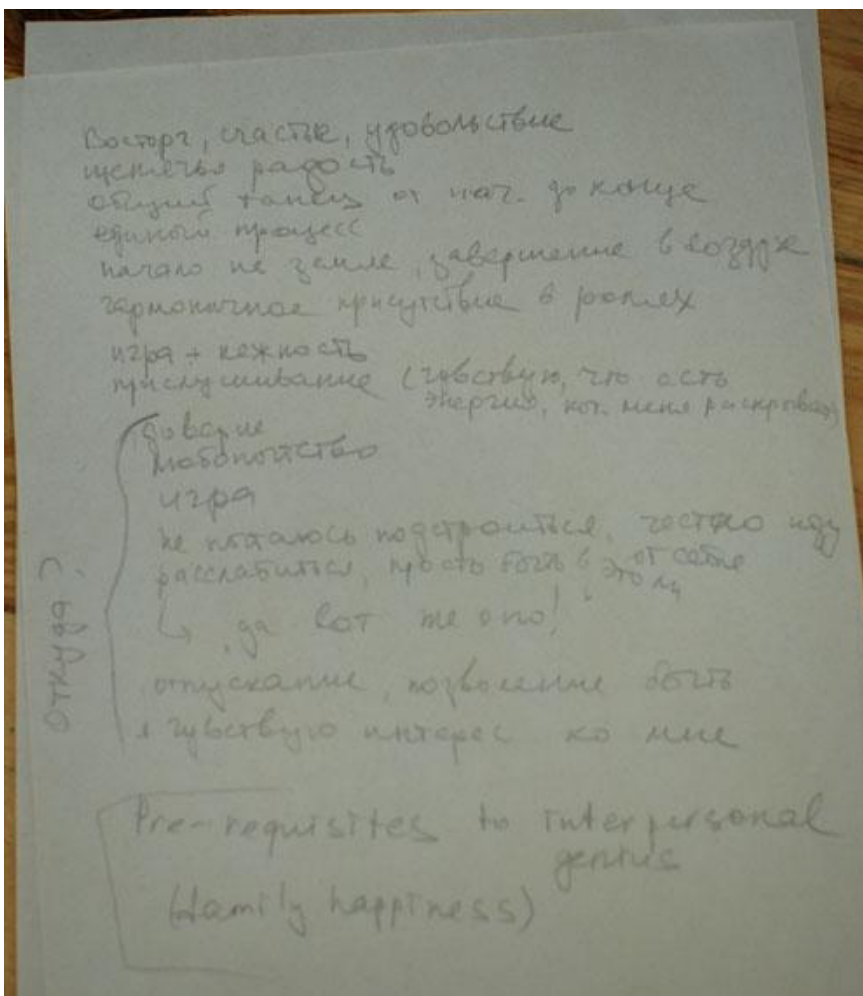 Восторг, счастье, удовольствие
щенячья радость
общий танец от нач. до конца
единый процесс
начало на земле, завершение в воздухе
гармоничное присутствие в ролях
игра + нежность
прислушивание (чувствую, что есть
энергия, кот. меня раскрывает)
Откуда?
доверие
любопытство
игра
не пытаюсь подстроиться, честно иду
от себя
расслабиться, просто быть в
↳ „да вот же оно!"
отпускание, позволение быть
я чувствую интерес ко мне
Pre-requisites to interpersonal
genius
(family happiness)